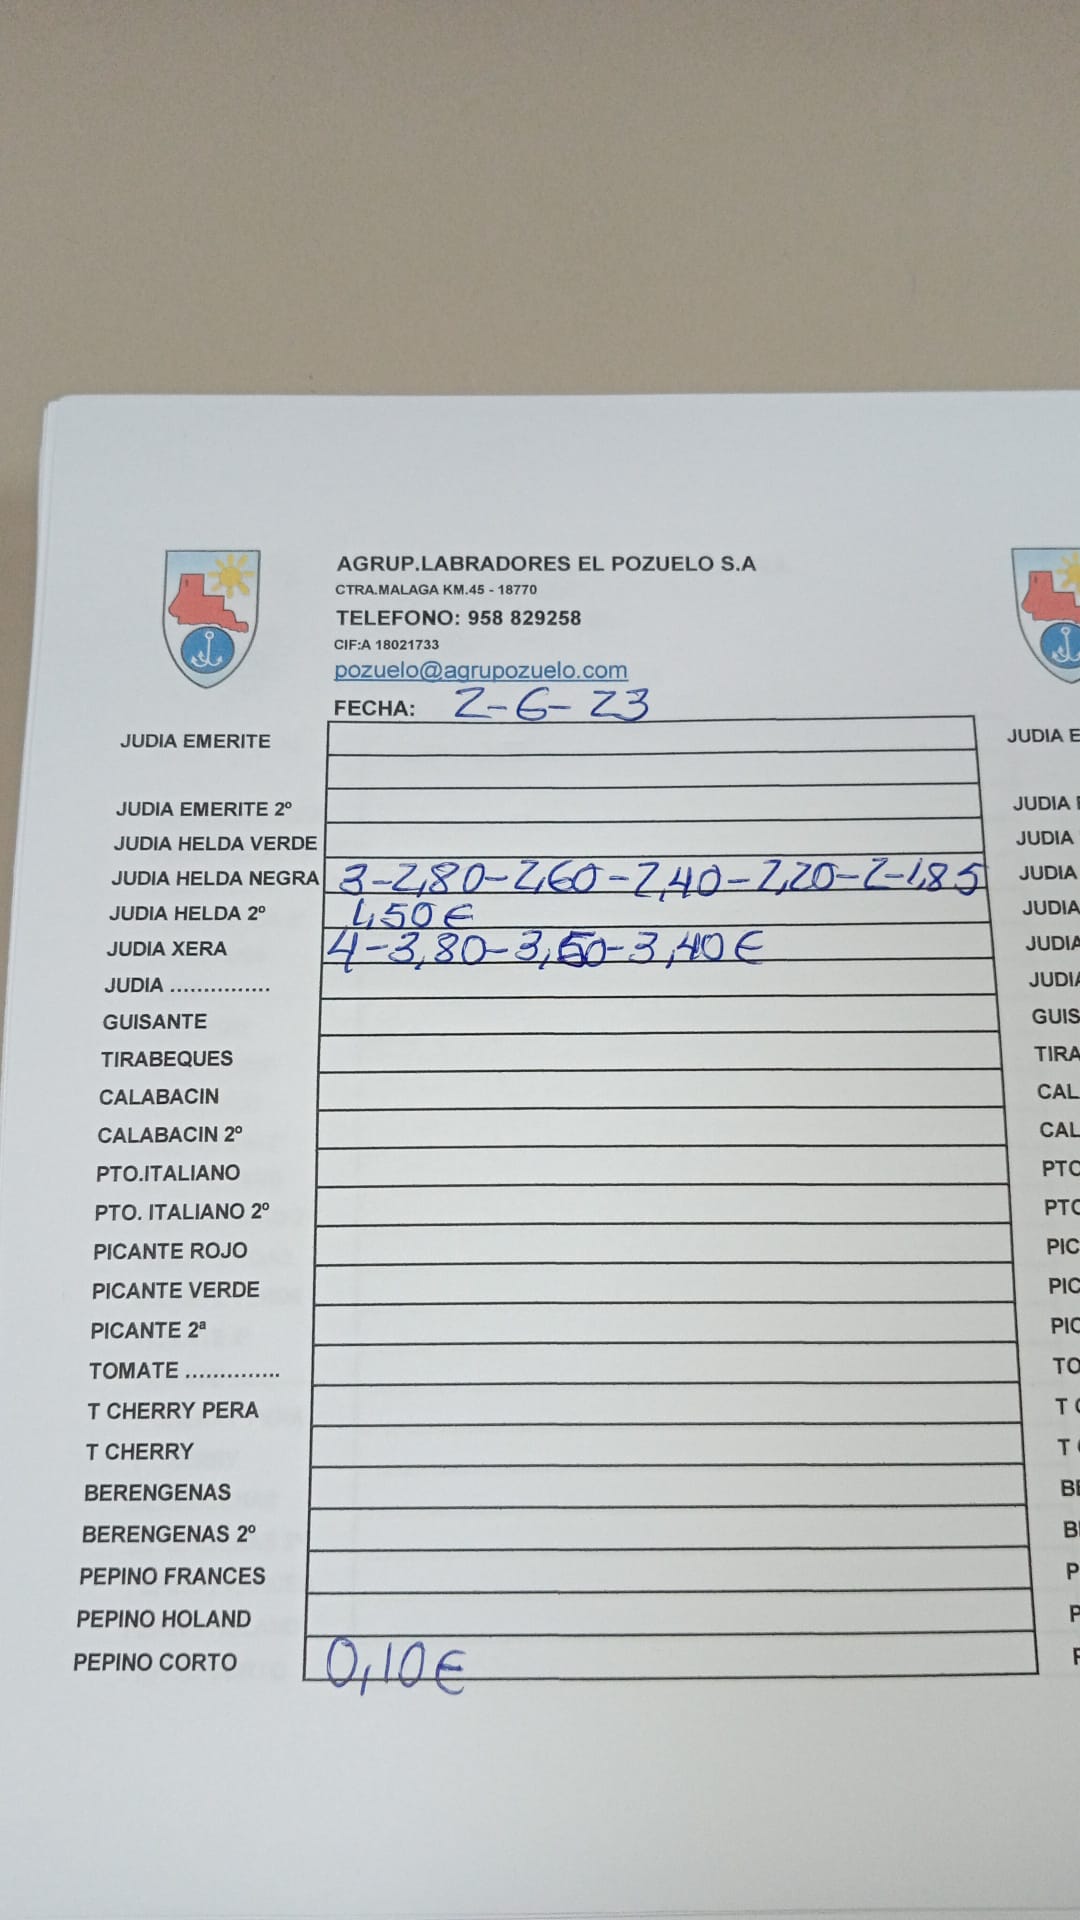 AGRUP.LABRADORES EL POZUELO S.A
CTRA.MALAGA KM.45 - 18770
TELEFONO: 958 829258
CIF:A 18021733
pozuelo@agrupozuelo.com
FECHA: 2-6-23
JUDIA EMERITE JUDIA E
JUDIA EMERITE 2º JUDIA
JUDIA HELDA VERDE JUDIA
JUDIA HELDA NEGRA 3-2,80-2,60-2,40-2,20-2-1,85 JUDIA
JUDIA HELDA 2º 1,50€ JUDIA
JUDIA XERA 4-3,80-3,60-3,40€ JUDIA
JUDIA ............... JUDIA
GUISANTE GUIS
TIRABEQUES TIRA
CALABACIN CAL
CALABACIN 2º CAL
PTO.ITALIANO PTO
PTO. ITALIANO 2º PTO
PICANTE ROJO PIC
PICANTE VERDE PIC
PICANTE 2ª PIC
TOMATE .............. TO
T CHERRY PERA T
T CHERRY T
BERENGENAS BE
BERENGENAS 2º B
PEPINO FRANCES P
PEPINO HOLAND P
PEPINO CORTO 0,10€